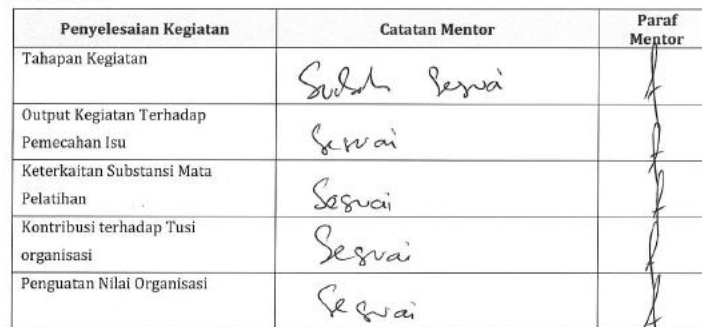 Penyelesaian Kegiatan Catatan Mentor Paraf
Mentor
Tahapan Kegiatan
Sudah Sesuai
Output Kegiatan Terhadap
Pemecahan Isu
Sesuai
Keterkaitan Substansi Mata
Pelatihan
Sesuai
Kontribusi terhadap Tusi
organisasi
Sesuai
Penguatan Nilai Organisasi
Sesuai